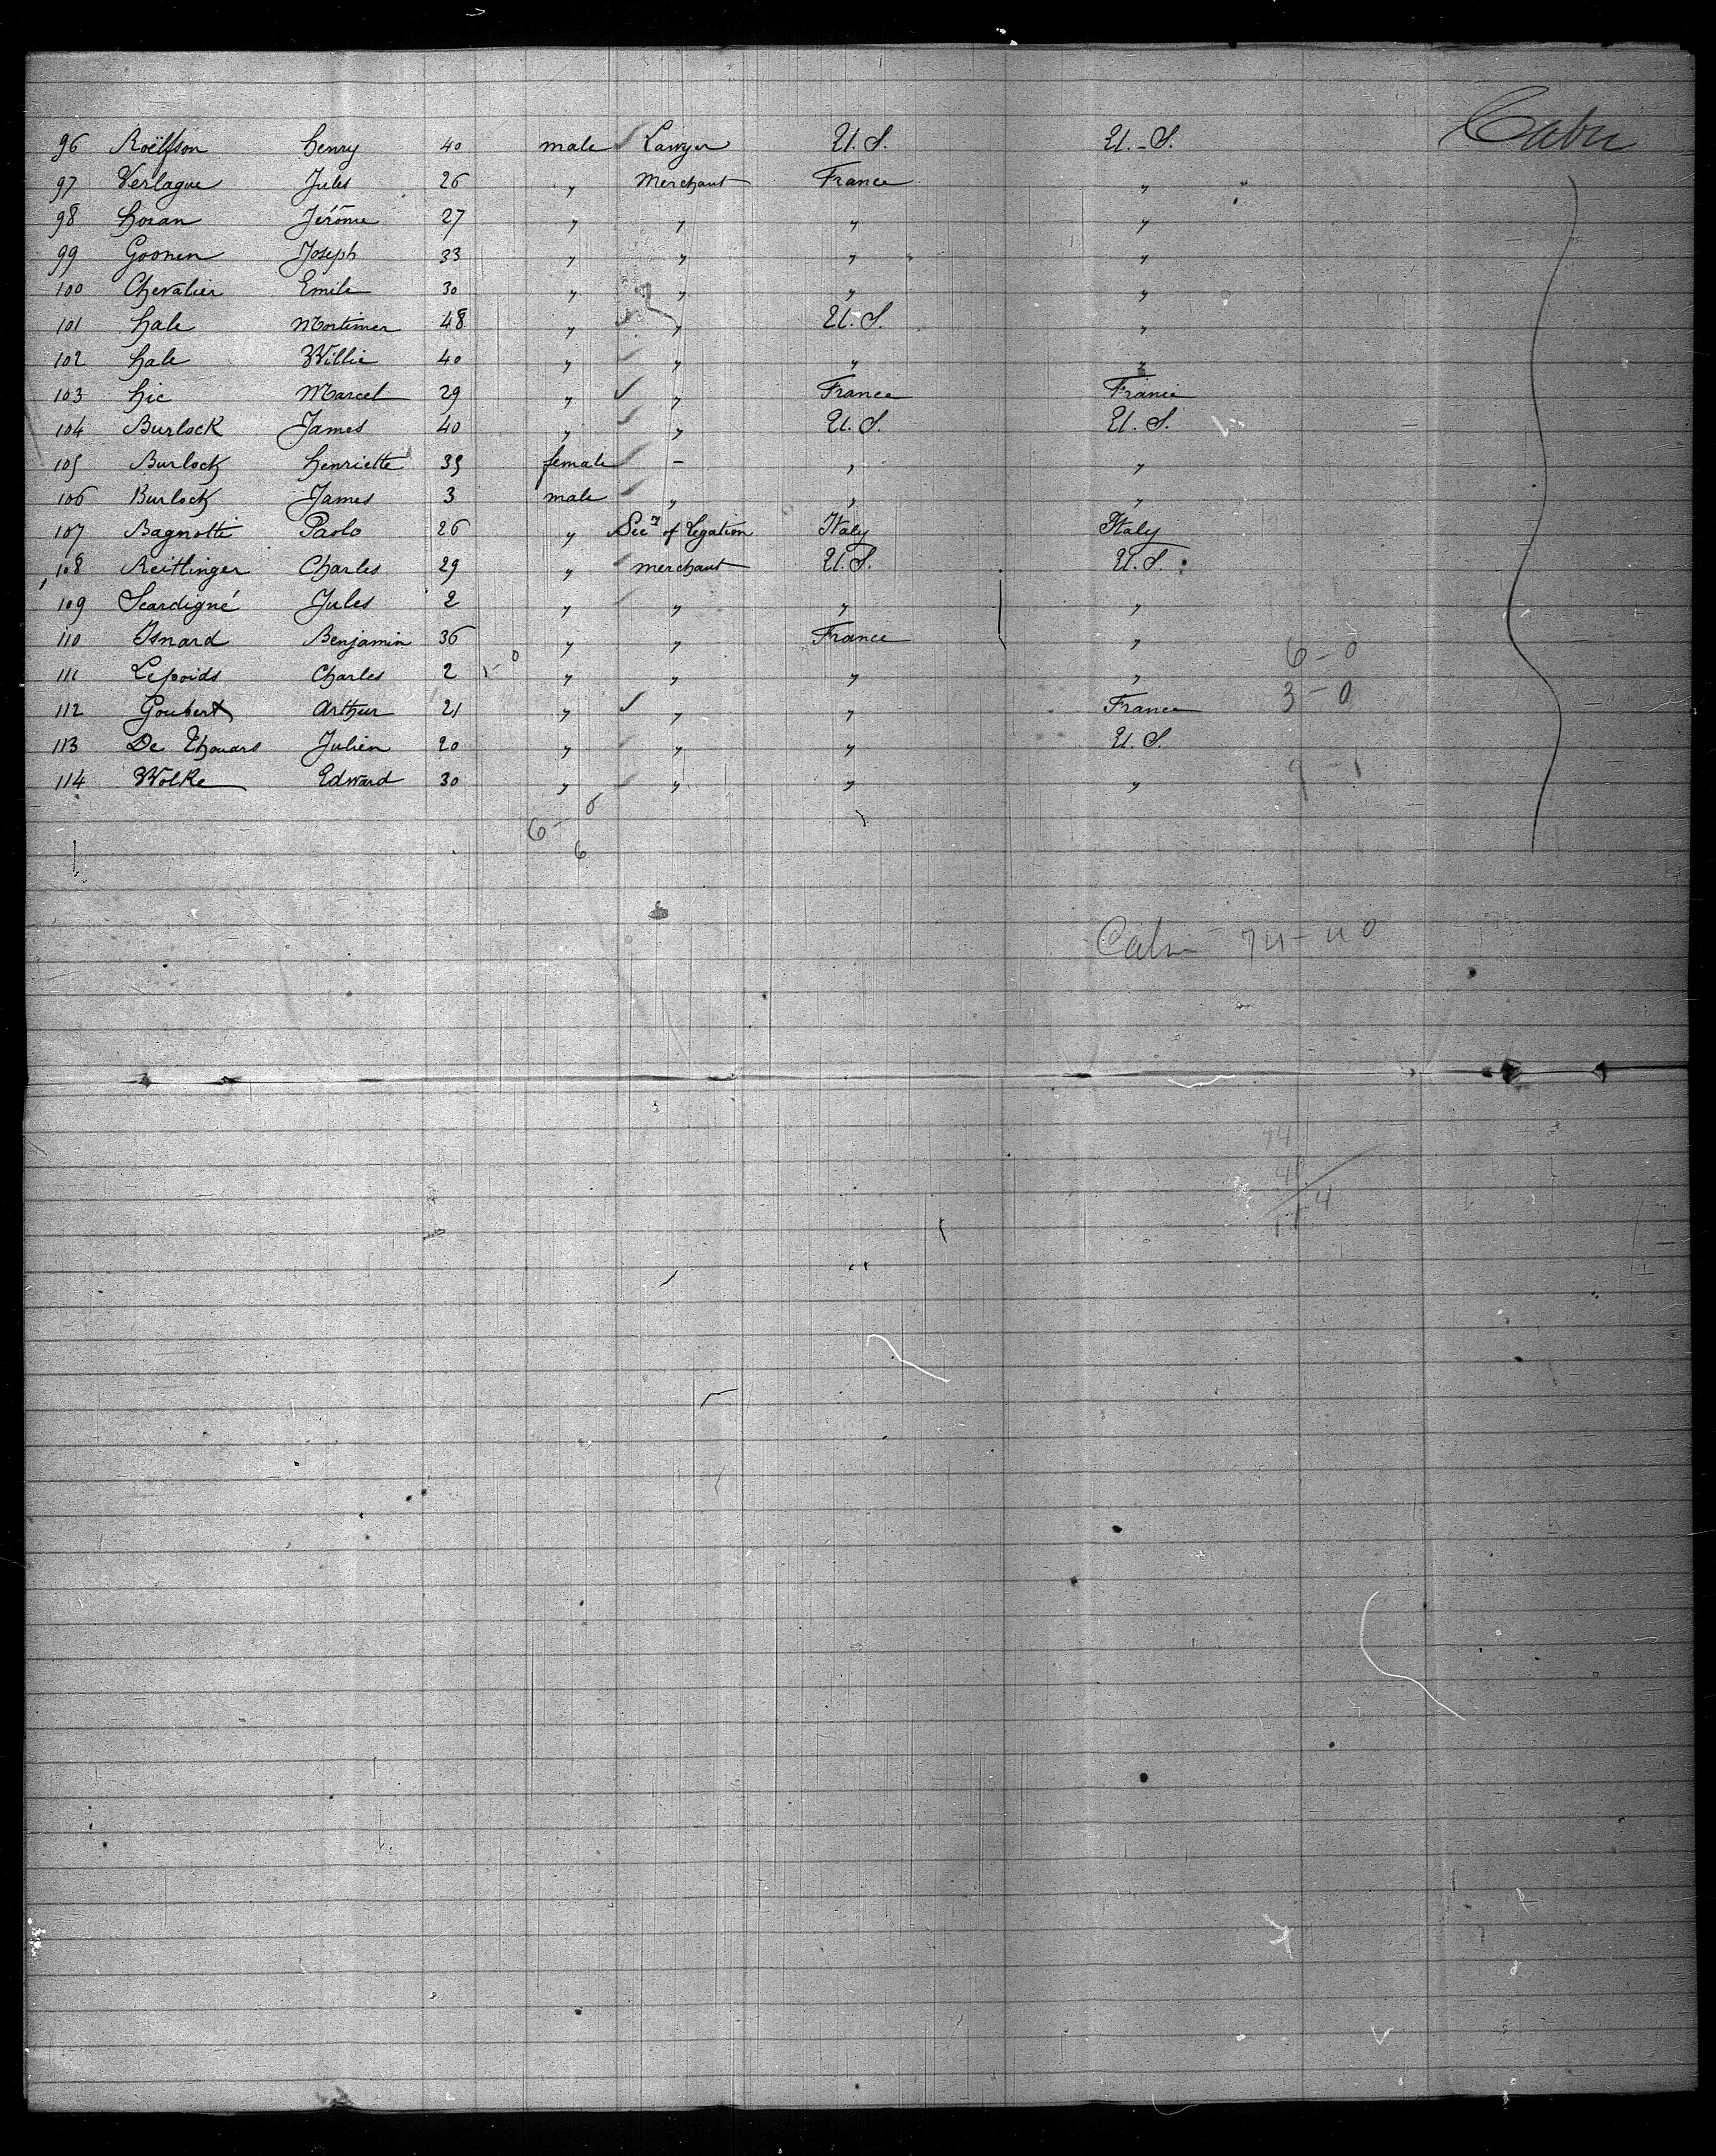 Cabin
96 Roëlfson Henry 40 male Lawyer U.S. U.-S.
97 Verlague Jules 26 " Merchant France "
98 Horan Jérôme 27 " " " "
99 Goonen Joseph 33 " " " "
100 Chevalier Emile 30 " " " "
101 Hale Mortimer 48 " " U.S. "
102 Hale Willie 40 " " " "
103 Hic Marcel 29 " " France France
104 Burlock James 40 " " U.S. U.S.
105 Burlock Henriette 35 female - " "
106 Burlock James 3 male " " "
107 Bagnotti Paolo 26 " Sec.y of Legation Italy Italy
108 Reitlinger Charles 29 " merchant U.S. U.S.
109 Scardigné Jules 2 " " " "
110 Isnard Benjamin 36 " " France "
6-0
111 Lepoids Charles 2 1-0 " " " "
112 Goubert Arthur 21 " " " France 3-0
113 De Thouars Julien 20 " " " U.S.
114 Wolke Edward 30 " " " " 9-1
6-6
6
Cabin 74-40
74
40
114